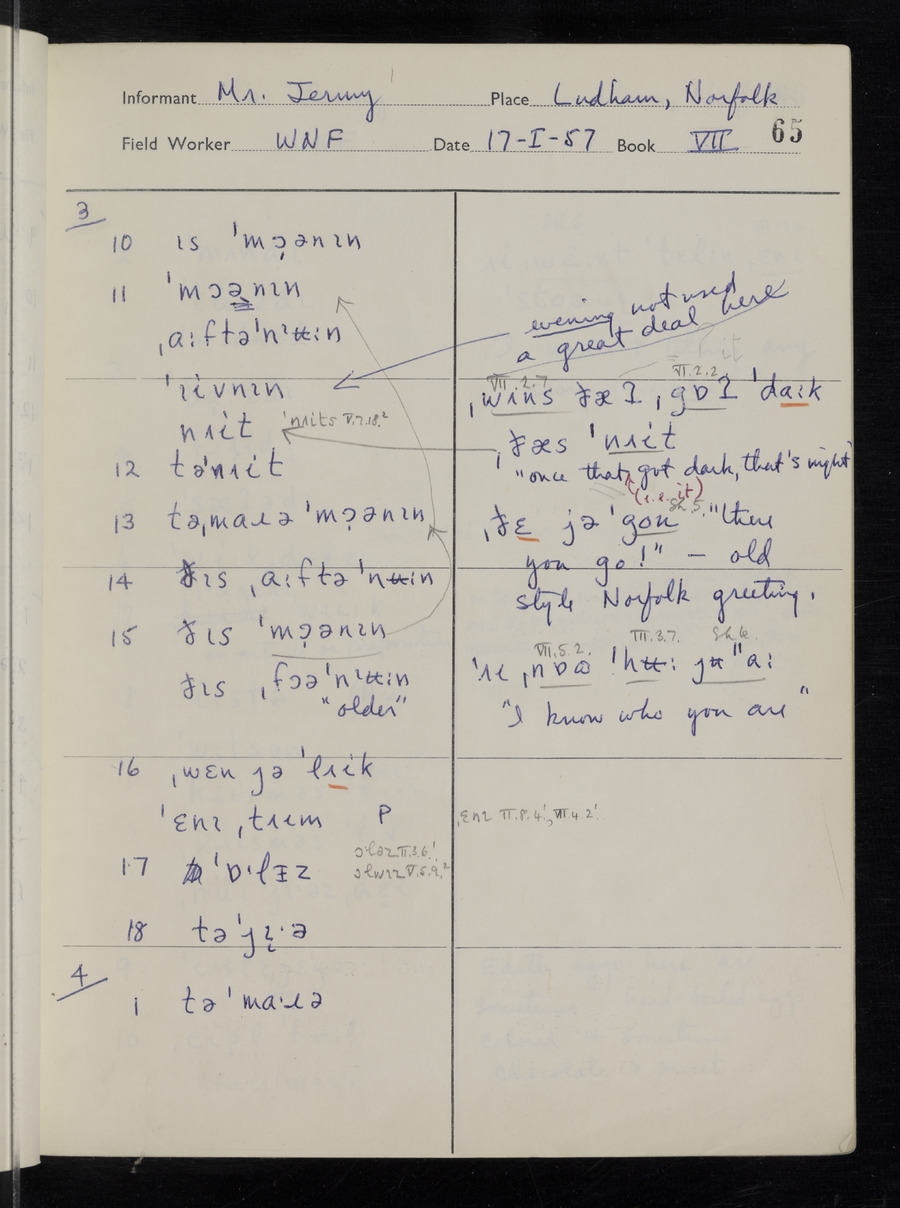 Informant Mr. Jermy Place Ludham, Norfolk
Field Worker WNF Date 17-I-57 Book VII 65
3
10 ɩs ˈmɔ̣ənɩn
11 ˈmɔənɩn
ˌaːftəˈnʉːn
ˈɩivnɩn
nʌɩt ˈnʌɩts V.7.18.²
12 təˈnʌɩt
13 təˌmaɹə ˈmɔ̣ənɩn
14 ðɩs ˌaːftəˈnʉːn
15 ðɩs ˈmɔ̣ənɩn
ðɩs ˌfɔəˈnʉːn
"older"
16 ˌwɛn jə ˈlʌɩk
ˈɛnɩ ˌtʌɩm P
17 ˈɒˑlɪz
18 təˈjɩ̣ˑə
4
1 təˈmaˑɹə
evening not used
a great deal here
VII.2.7 VI.2.2
ˌwʌns ðæʔ ˌgɒʔ ˈdaːk
ˌðæs ˈnʌɩt
"once that, got dark, that's night
(i.e. it)
Sh.5.
ˌðɛ jə ˈgoʊ "there
you go!" – old
style Norfolk greeting.
VII.5.2. III.3.7. Sh.6.
ˈʌɩ ˌnɒʊ ˈhʉː jʉ "aː
"I know who you are"
ˌɛnɩ II.8.4.¹, VII.4.2.¹